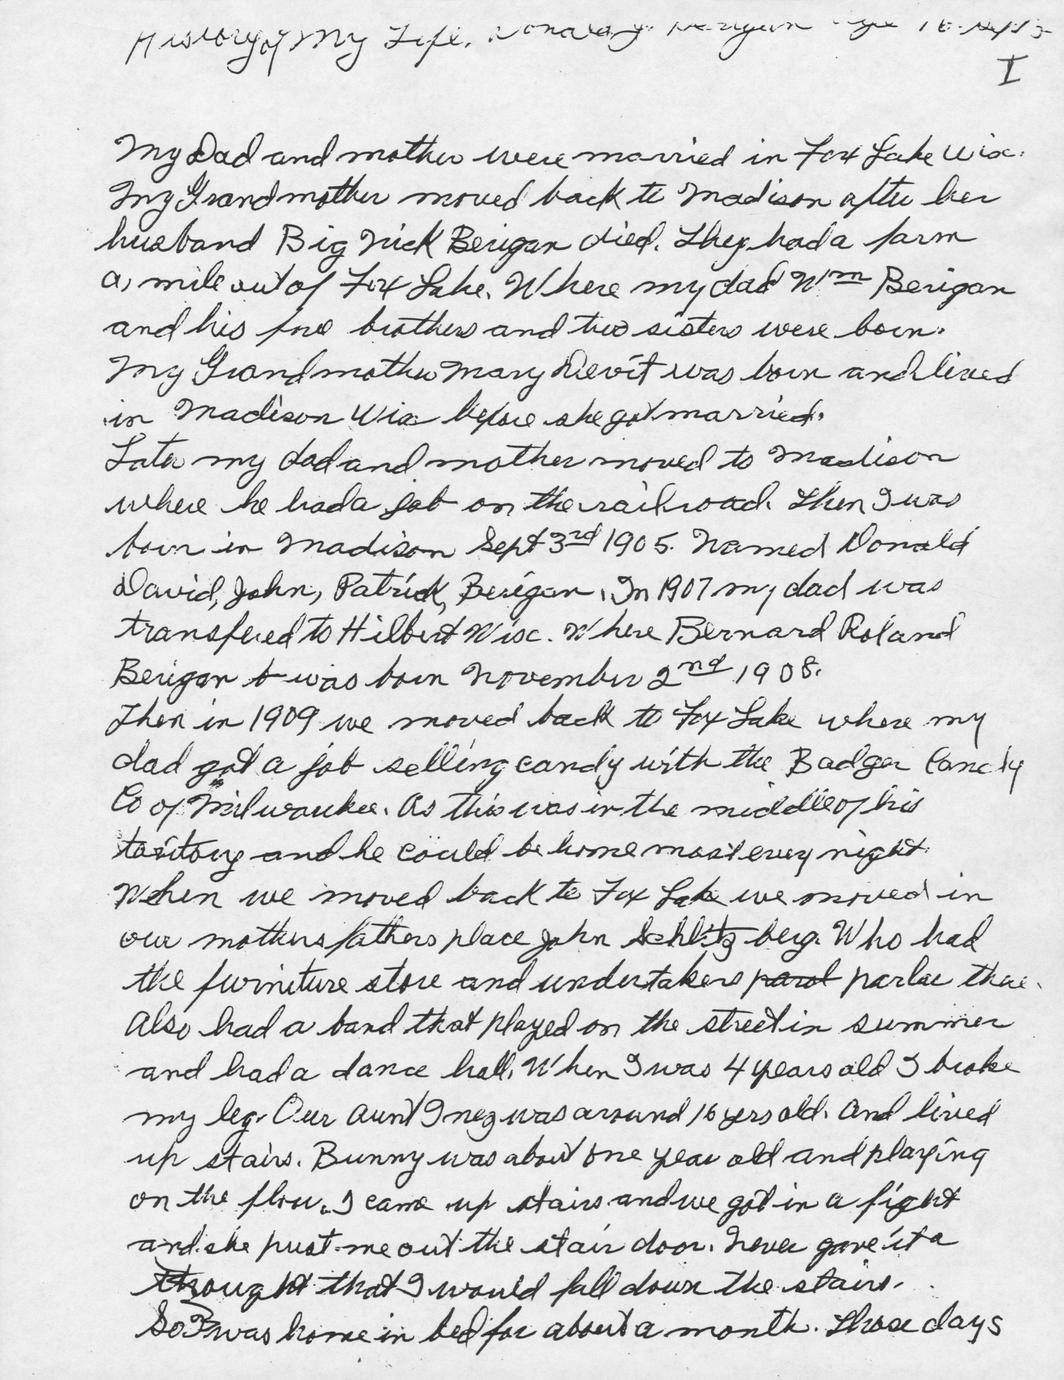 History of My Life. Donald J. Berigan Age 76 Sept 3
I
My Dad and mother were married in Fox Lake Wisc.
My Grandmother moved back to Madison after her
husband Big Nick Berigan died. They had a farm
a, mile out of Fox Lake. Where my dad Wm Berigan
and his five brothers and two sisters were born.
My Grandmother Mary was born and lived
in Madison Wisc before she got married.
Later my dad and mother moved to Madison
where he had a job on the railroad. Then I was
born in Madison Sept 3rd 1905. Named Donald
David, John, Patrick, Berigan. In 1907 my dad was
transfered to Hilbert Wisc. Where Bernard Roland
Berigan was born November 2nd 1908.
Then in 1909 we moved back to Fox Lake where my
dad got a job selling candy with the Badger Candy
Co of Milwaukee. As this was in the middle of his
and he could be home most every night
When we moved back to Fox Lake we moved in
our mothers fathers place John Schlitzberg. Who had
the furniture store and undertakers parlor there.
Also had a band that played on the street in summer
and had a dance hall. When I was 4 years old I broke
my leg. Our Aunt Inez was around 16 yrs old. And lived
up stairs. Bunny was about one year old and playing
on the floor. I came up stairs and we got in a fight
and she pust me out the stair door. Never gave it a
thought that I would fall down the stairs.
So I was home in bed for about a month. Those days